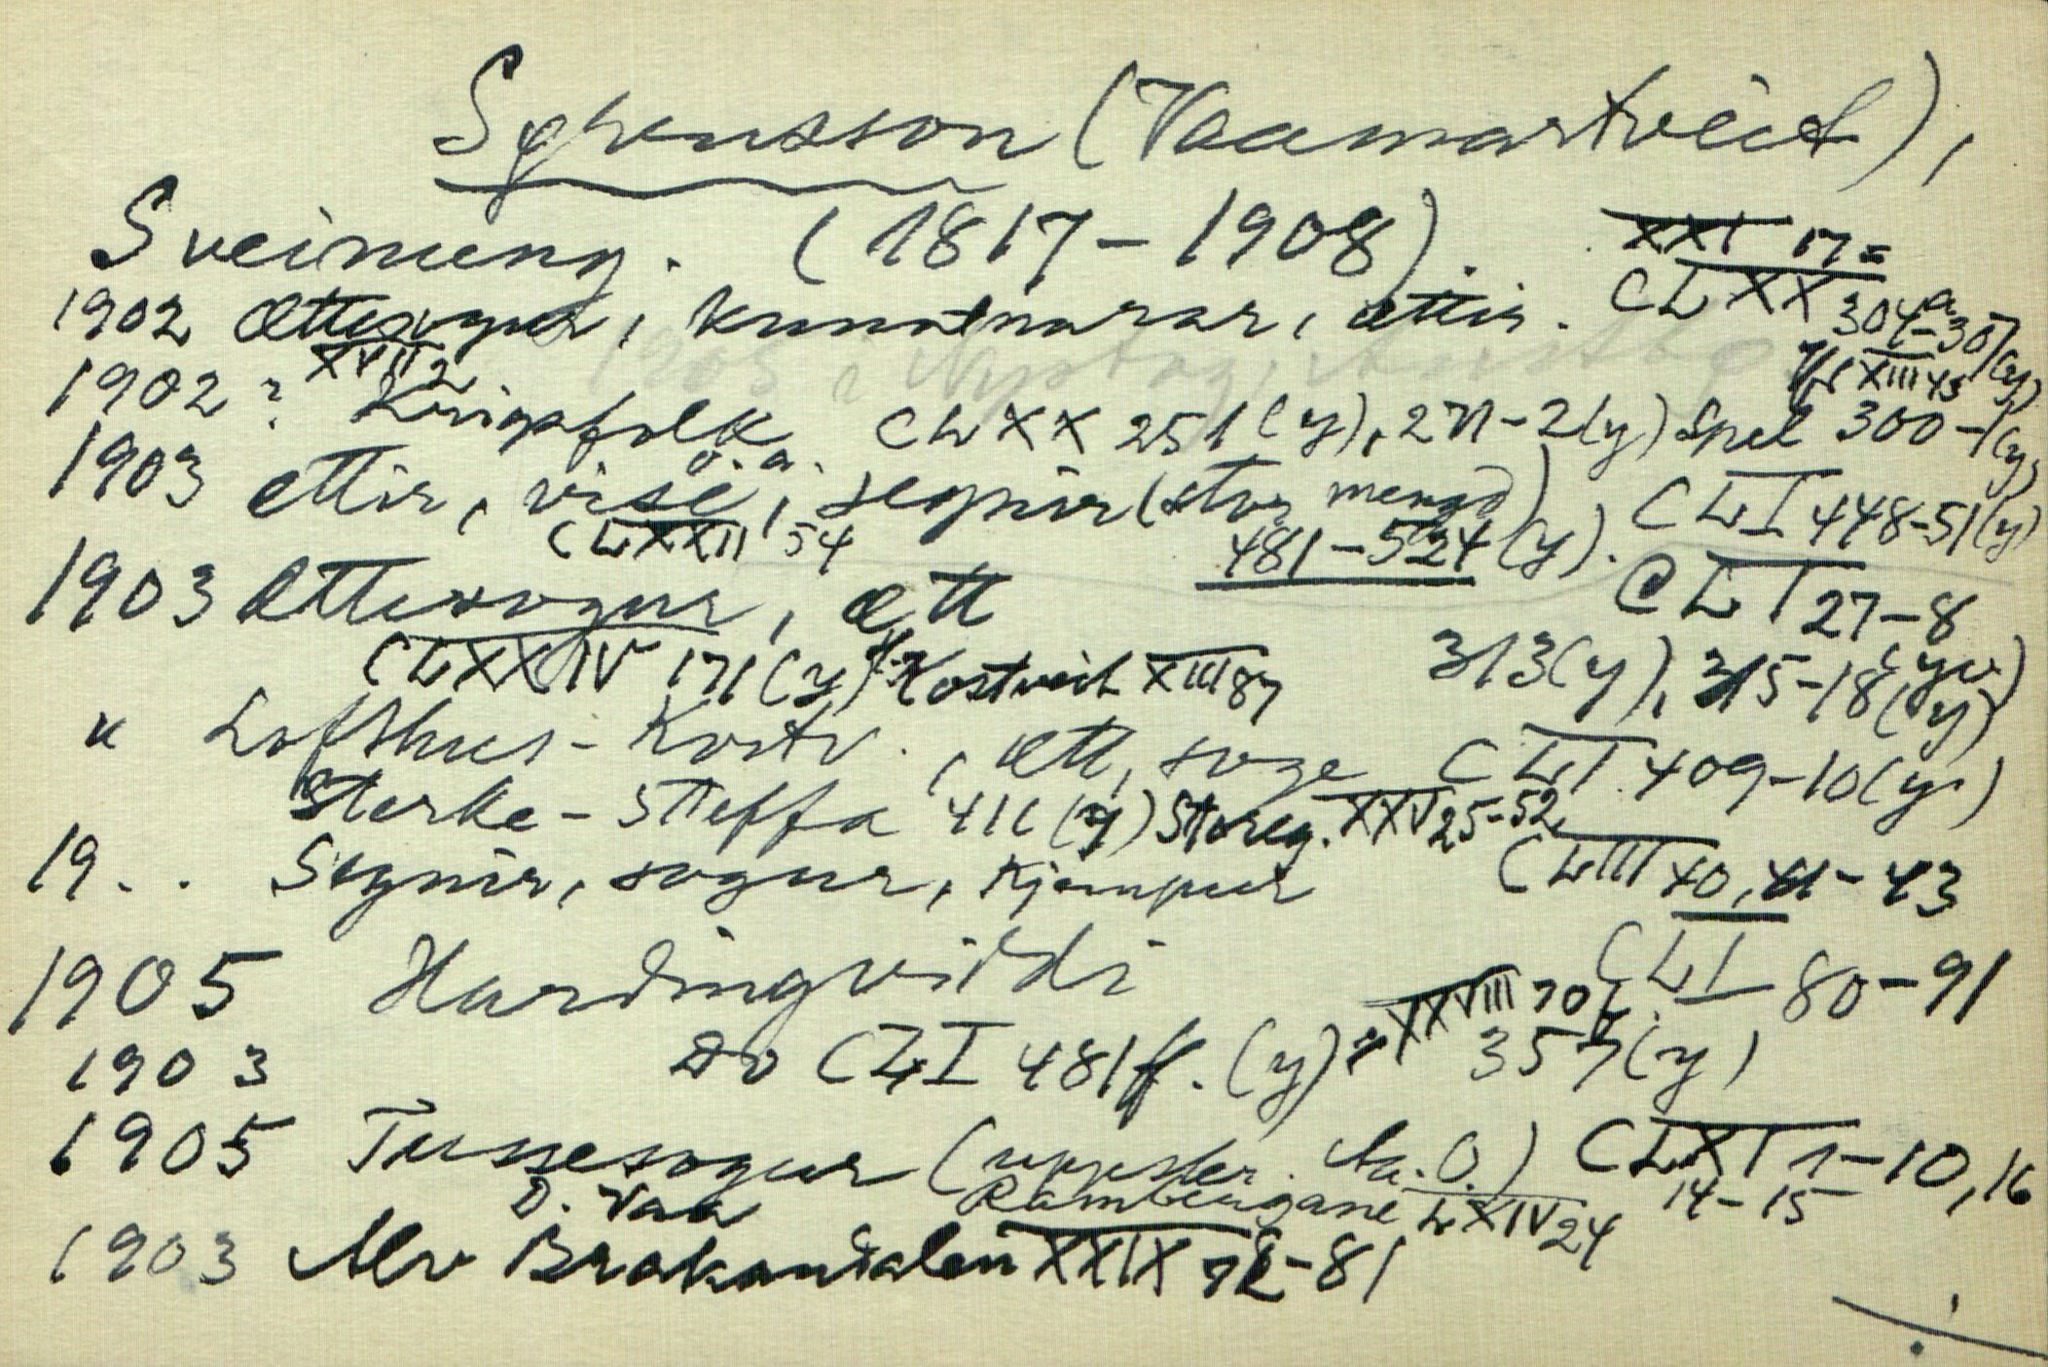 Sphensson (Vaamartveit),
Sveinung. (1817-1908). XXI 17=
1902 Ættesogur, kunstnarar, ættir. CLXX 304-305(y)
XVII2 XIII 45
1902? Krigsfolk CLXX 251(y), 271-2(y) Spel 300-1(y)
o.a.
1903 ettir, vise, segnir (stor mengd) CLI 448-51(y)
CLXXII 54 481-524(y).
1903 Ættesogur, ætt CLI 27-8
CLXXIV 171(y) Kostveit XIII87 313(y), 315-18(y)
" Lofthus-Kostv., ætt, soge CLI 409-10(y)
Sterke-Steffa 411(y) Storeg. XXV 25-52
19.. Segnir, sogur, kjempur CLIII 40, 41-43
1905 Hardingviddi CLI 80-91
1903 Do CLI 481ff. (y) = XXVIII 70 357(y)
1905 Tussesogur (uppskr. Aa.O.) CLXI 1-10, 16
O. Vaa Rambergane LXIV 24 14-15
1903 Mo Brokandalen XXIX 72-81